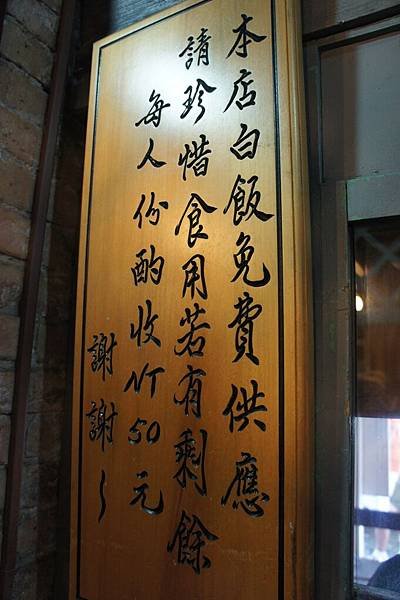 本店白飯免費供應
請珍惜食用若有剩餘
每人份酌收NT50元
謝謝～